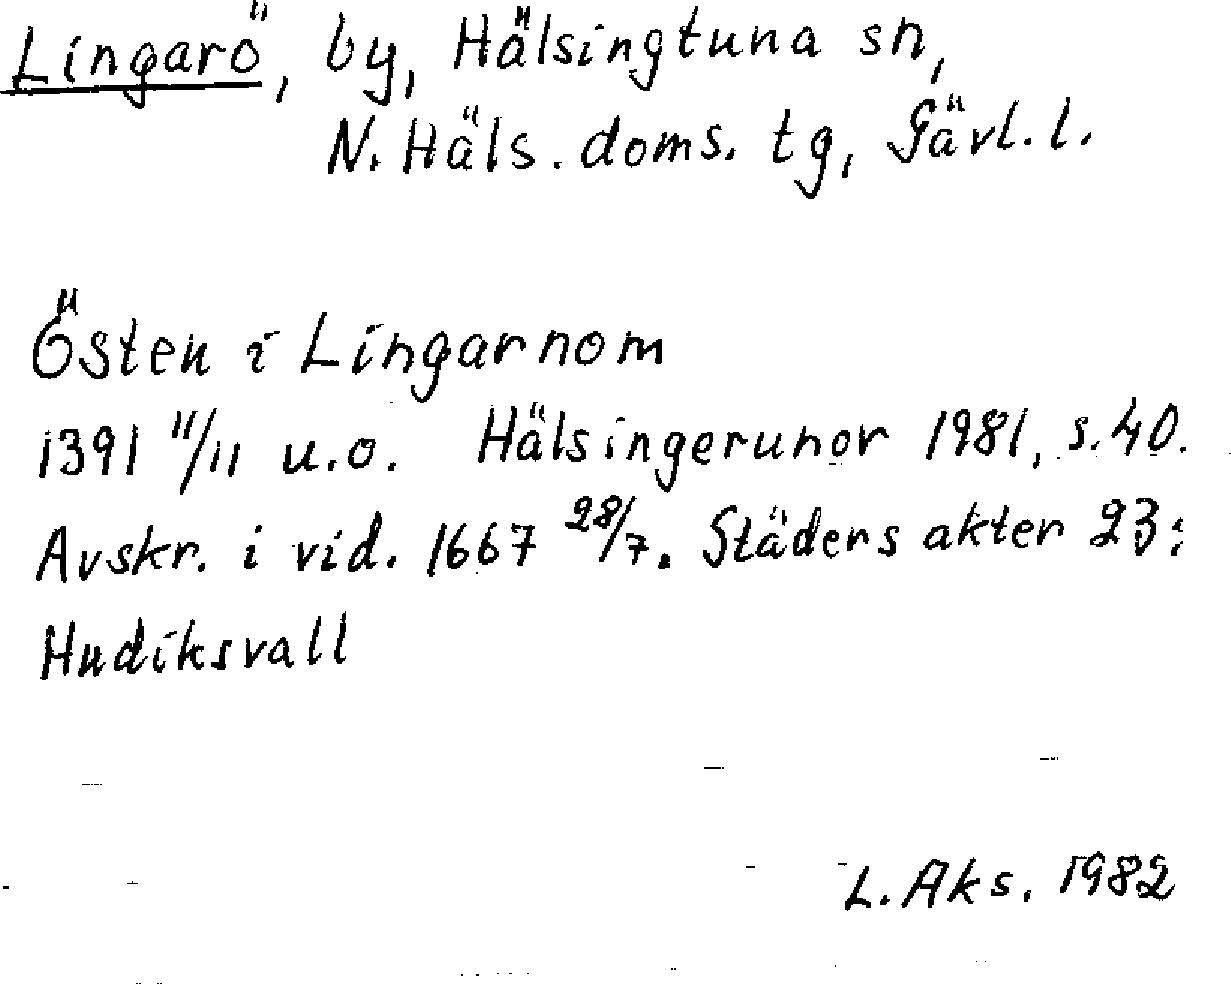 Lingarö, by, Hälsingtuna sn,
N. Häls. doms. tg, Gävl. l.
Östen i Lingarnom
1391 11/11 u.o. Hälsingerunor 1981, s. 40.
Avskr. i vid. 1667 28/7. Städers akter 23:
Hudiksvall
L. Aks. 1982